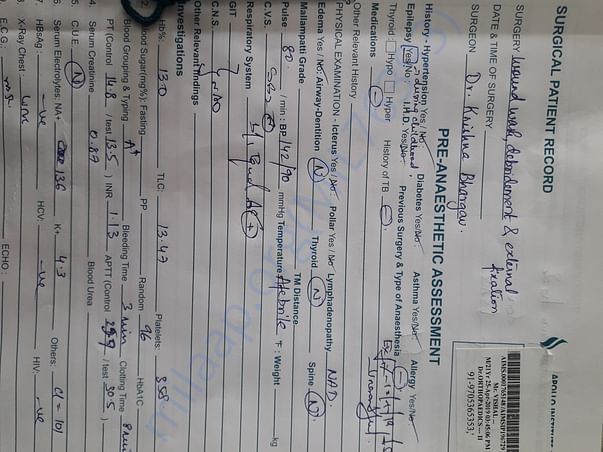 SURGICAL PATIENT RECORD
SURGERY wound wash debridement & external fixation
DATE & TIME OF SURGERY
SURGEON Dr. Krishna Bhargav.
Mr. VISHAL
M/21Yr 25-Apr-2019 03:45:06 PM
Dr.ORTHOPAEDICS --- II
91-9705365353,
PRE-ANAESTHETIC ASSESSMENT
History - Hypertension Yes / No Diabetes Yes/No Asthma Yes/No Allergy Yes/No
Epilepsy Yes/No during childhood, I.H.D. Yes/No Previous Surgery & Type of Anaesthesia
Thyroid Hypo Hyper History of TB
Medications
Other Relevant History
PHYSICAL EXAMINATION - Icterus Yes / No Pollar Yes / No Lymphadenopathy NAD
Edema Yes / No: Airway-Dentition N Thyroid N Spine N
Mallampatti Grade TM Distance
Pulse 80 / min : BP 142/90 mmHg Temperature Afebrile °F : Weight kg
C.V.S. S1S2
Respiratory System
GIT
C.N.S. NAD
Other Relevant findings
Investigations
Hb%: 13.0 TLC: 13.47 Platelets: 358
2. Blood Sugar(mg%): Fasting PP Random 96 HbA1C
Blood Grouping & Typing A+ Bleeding Time 3 min Clotting Time 8 min
PT(Control 14.8 / test 13.5 ) INR 1.13 APTT (Control 29.9 / test 30.5 )
4. Serum Creatinine 0.87 Blood Urea
5. C.U.E. N
6. Serum Electrolytes: NA+ 136 K+ 4.3 Others: Cl = 101
7. HBsAg: -ve HCV: -ve HIV: -ve
8. X-Ray Chest:
E.C.G. ECHO :
milaap.org